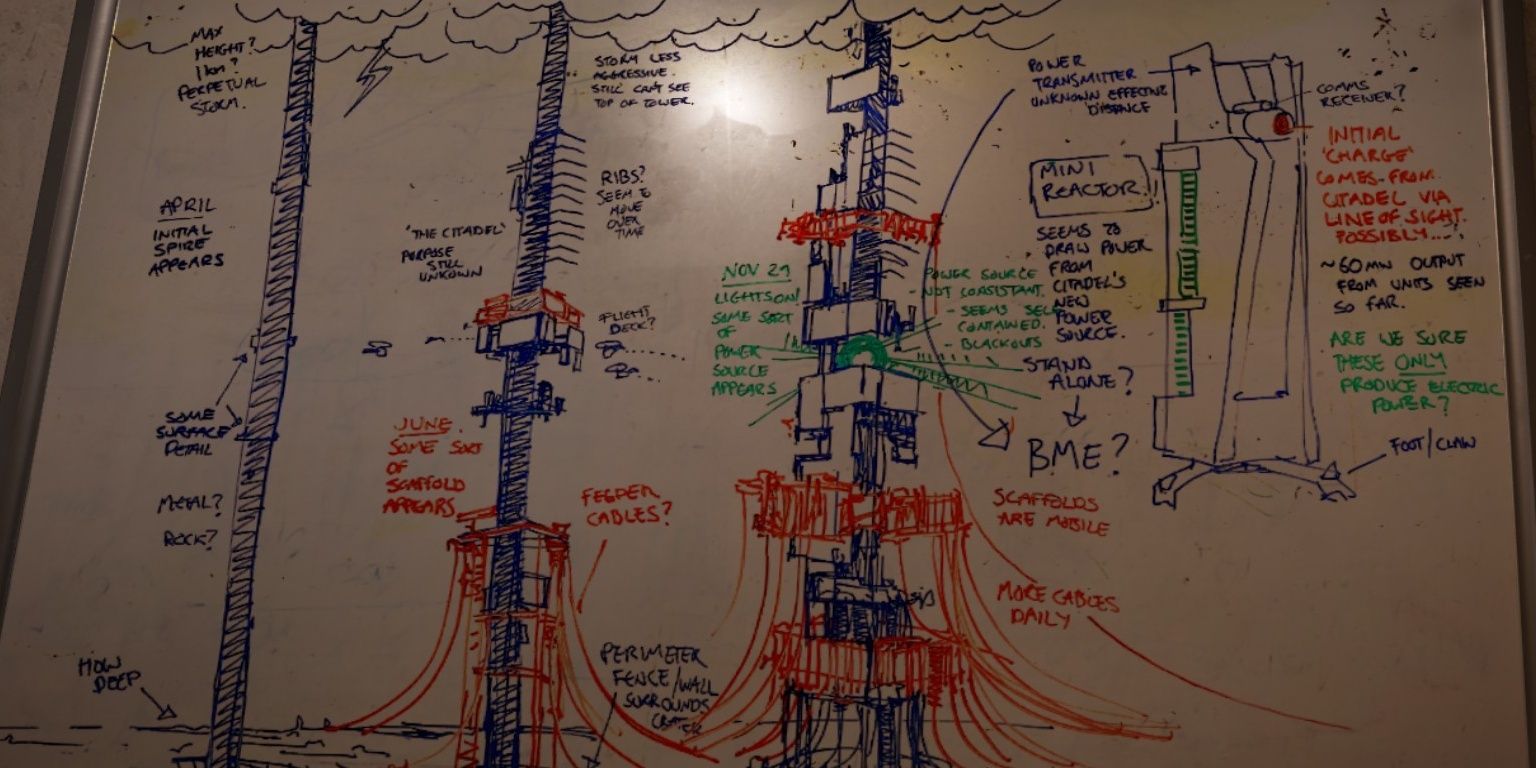 MAX
HEIGHT?
1km?
PERPETUAL
STORM.
APRIL
INITIAL
SPIRE
APPEARS
SOME
SURFACE
DETAIL
METAL?
ROCK?
HOW
DEEP
STORM LESS
AGGRESSIVE.
STILL CAN'T SEE
TOP OF TOWER.
RIBS?
SEEM TO
MOVE
OVER
TIME
'THE CITADEL'
PURPOSE
STILL
UNKNOWN
FLIGHT
DECK?
JUNE
SOME SORT
OF
SCAFFOLD
APPEARS
FEEDER
CABLES?
PERIMETER
FENCE/WALL
SURROUNDS
NOV 29
LIGHTS ON!
SOME SORT
OF
POWER
SOURCE
APPEARS
POWER SOURCE
- NOT CONSISTANT.
- SEEMS SELF
CONTAINED.
- BLACKOUTS
SCAFFOLDS
ARE MOBILE
MORE CABLES
DAILY
POWER
TRANSMITTER
UNKNOWN EFFECTIVE
DISTANCE
MINI
REACTOR!
SEEMS TO
DRAW POWER
FROM
CITADEL'S
NEW
POWER
SOURCE.
STAND
ALONE?
BME?
COMMS
RECEIVER?
INITIAL
'CHARGE'
COMES FROM
CITADEL VIA
LINE OF SIGHT.
POSSIBLY....
~60MW OUTPUT
FROM UNITS SEEN
SO FAR.
ARE WE SURE
THESE ONLY
PRODUCE ELECTRIC
POWER?
FOOT/CLAW